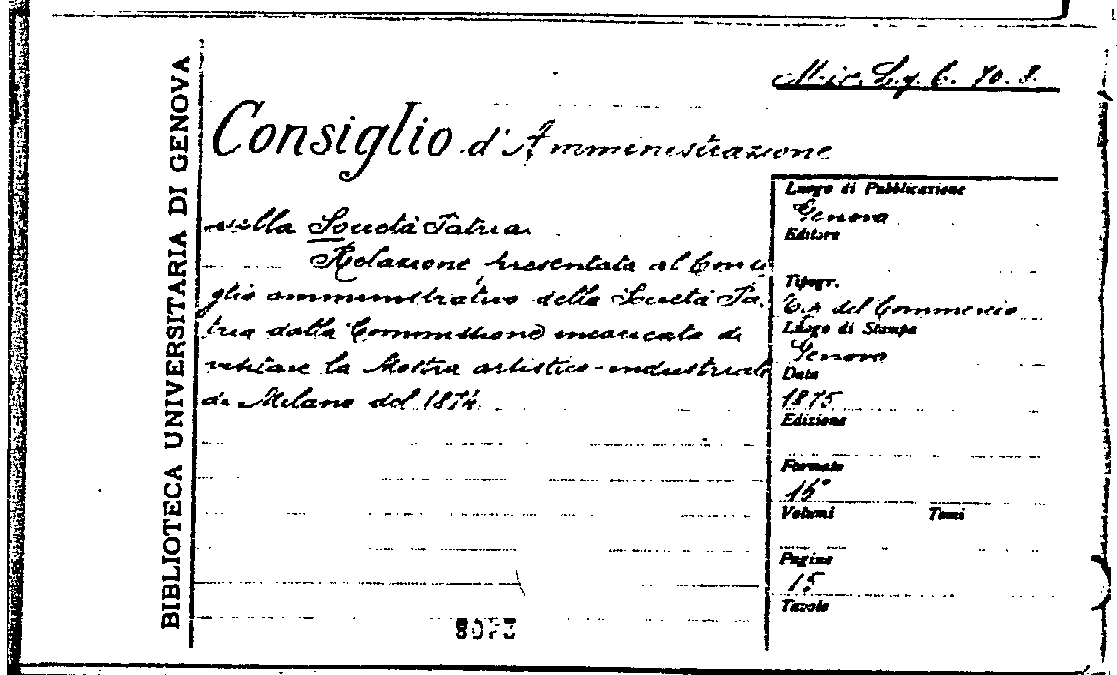 BIBLIOTECA UNIVERSITARIA DI GENOVA
Misc. Lig. C. 70. 8.
Consiglio d'Amministrazione
nella Società Patria.
Relazione presentata al Consi
glio amministrativo della Società Pa.
tria dalla Commissione incaricata di
visitare la Mostra artistico-industriale
di Milano del 1874
Luogo di Pubblicazione
Genova
Editore
Tipogr.
del Commercio
Luogo di Stampa
Genova
Data
1875
Edizione
Formato
Volumi Tomi
Pagine
15
Tavole